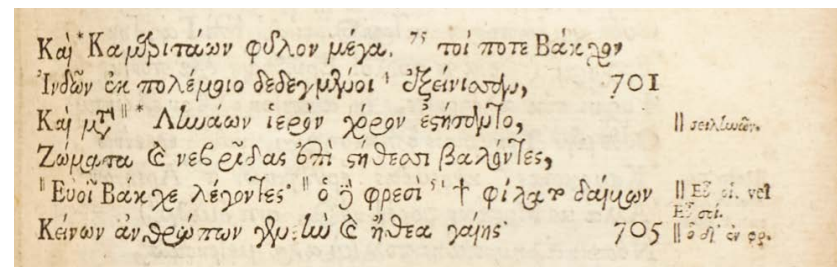 Καὶ * Καμαριτάων φῦλον μέγα. 75 τοί ποτε Βάκχον
Ἰνδῶν ἐκ πολέμοιο δεδεγμένοι ἐξείνισαν, 701
Καὶ μετὰ || * Ληνάων ἱερὸν χόρον ἐστήσαντο, || σειληνῶν.
Ζώματα καὶ νεβρῖδας ἐπὶ στήθεσσι βαλόντες,
|| Εὐοῖ Βάκχε λέγοντες· || ὁ δὲ φρεσὶ † φίλατο δαίμων || Εὖ οἷ. vel
Εὖ σοί.
Κείνων ἀνθρώπων γενεὴν καὶ ἤθεα γαίης· 705 || ὁ δ' ἐν φρ.